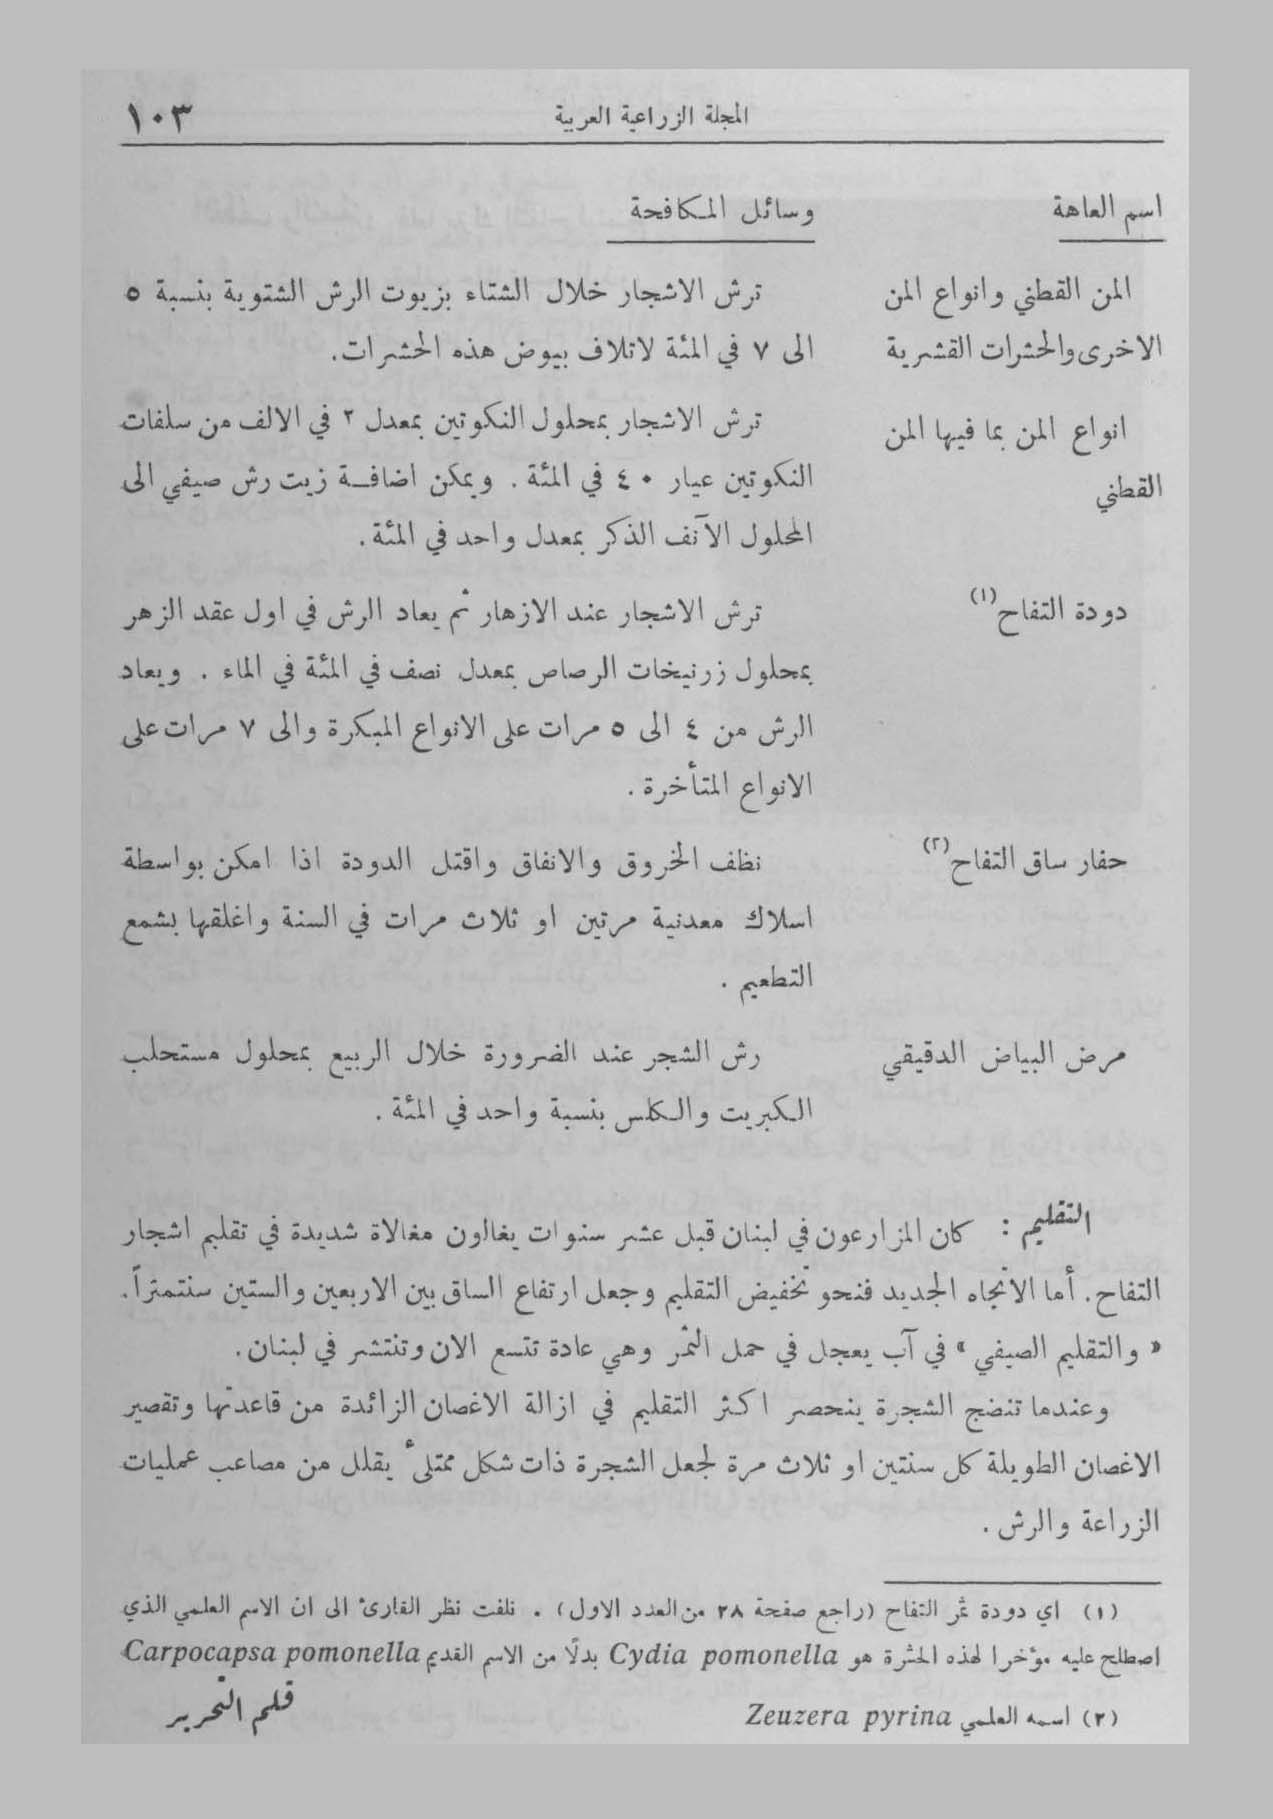 المجلة الزراعية العربية ١٠٣
اسم العاهة وسائل المكافحة
المن القطني وانواع المن ترش الاشجار خلال الشتاء بزيوت الرش الشتوية بنسبة ٥
الاخرى والحشرات القشرية الى ٧ في المئة لاتلاف بيوض هذه الحشرات.
انواع المن بما فيها المن ترش الاشجار بمحلول النكوتين بمعدل ٢ في الالف من سلفات
القطني النكوتين عيار ٤٠ في المئة . ويمكن اضافة زيت رش صيفي الى
المحلول الآنف الذكر بمعدل واحد في المئة.
دودة التفاح(١) ترش الاشجار عند الازهار ثم يعاد الرش في اول عقد الزهر
بمحلول زرنيخات الرصاص بمعدل نصف في المئة في الماء . ويعاد
الرش من ٤ الى ٥ مرات على الانواع المبكرة والى ٧ مرات على
الانواع المتأخرة .
حفار ساق التفاح(٢) نظف الخروق والانفاق واقتل الدودة اذا امكن بواسطة
اسلاك معدنية مرتين او ثلاث مرات في السنة واغلقها بشمع
التطعيم .
مرض البياض الدقيقي رش الشجر عند الضرورة خلال الربيع بمحلول مستحلب
الكبريت والكلس بنسبة واحد في المئة .
التقليم : كان المزارعون في لبنان قبل عشر سنوات يغالون مغالاة شديدة في تقليم اشجار
التفاح. أما الاتجاه الجديد فنحو تخفيض التقليم وجعل ارتفاع الساق بين الاربعين والستين سنتمتراً.
« والتقليم الصيفي » في آب يعجل في حمل الثمر وهي عادة تتسع الان وتنتشر في لبنان.
وعندما تنضج الشجرة ينحصر اكثر التقليم في ازالة الاغصان الزائدة من قاعدتها وتقصير
الاغصان الطويلة كل سنتين او ثلاث مرة لجعل الشجرة ذات شكل ممتلىء يقلل من مصاعب عمليات
الزراعة والرش .
(١) اي دودة ثمر التفاح (راجع صفحة ٢٨ من العدد الاول) . نلفت نظر القارىء الى ان الاسم العلمي الذي
اصطلح عليه مؤخرا لهذه الحشرة هو Cydia pomonella بدلًا من الاسم القديم Carpocapsa pomonella
(٢) اسمه العلمي Zeuzera pyrina قلم التحرير